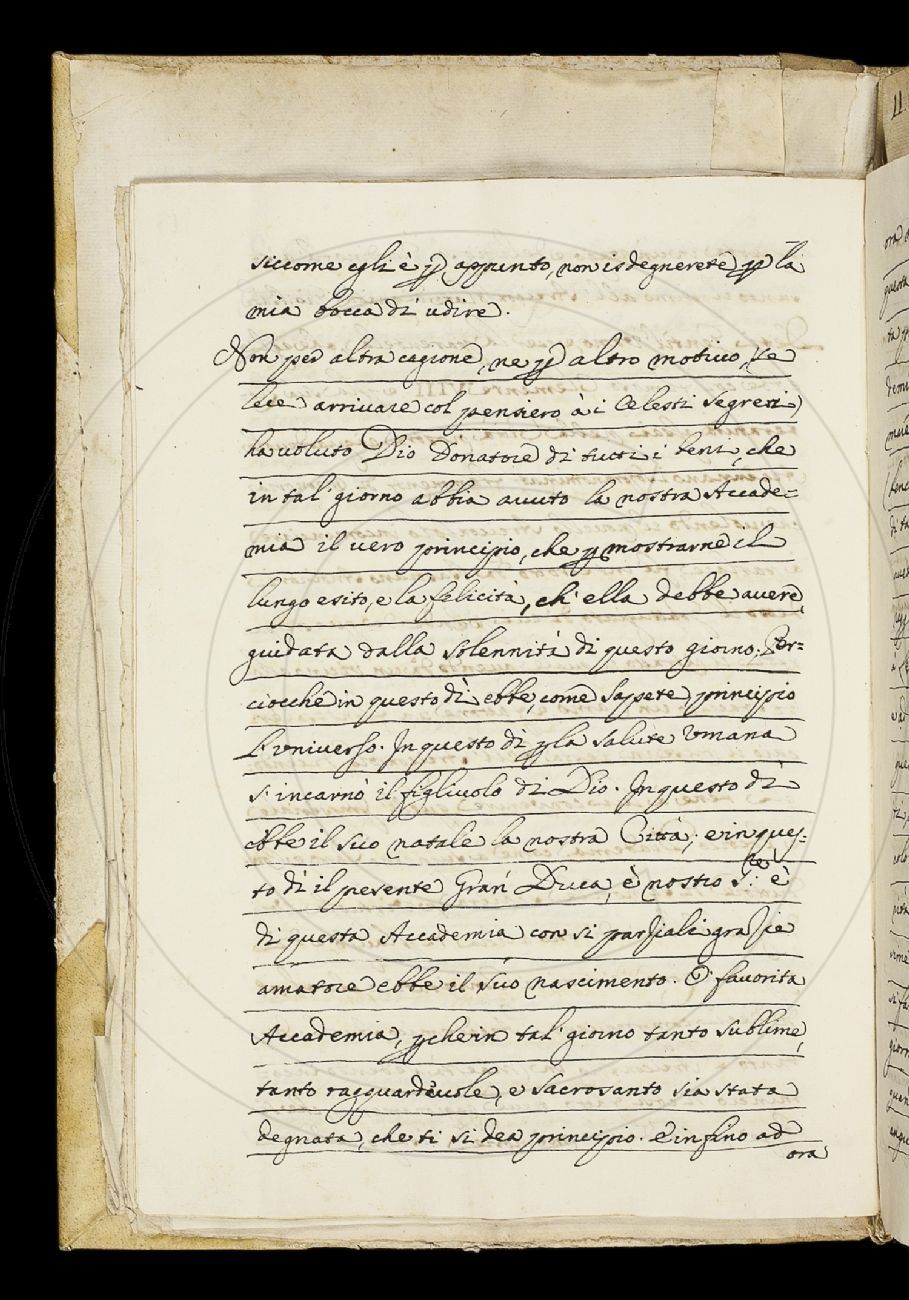 siccome egli è p appunto, non isdegnerete p la
mia bocca di udire.
Non per altra cagione, ne p altro motivo, se
lece arrivare col pensiero à i Celesti segreti
ha voluto Dio Donatore di tutti i beni, che
in tal' giorno abbia avuto la nostra Accade=
mia il vero principio, che p mostrarne il
lungo esito, e la felicità, ch' ella debbe avere,
guidata dalla solennità di questo giorno. Per=
ciocche in questo dì ebbe, come sapete, principio
L'universo. In questo dì p la salute umana
s' incarnò il figliuolo di Dio. In questo dì
ebbe il suo natale la nostra Città; e in ques=
to dì il pesente Gran' Duca, è nostro S.re è
di questa Accademia con si parziali grazie
amatore ebbe il suo nascimento. O' favorita
Accademia, pche in tal' giorno tanto sublime,
tanto ragguardevole, e sacrosanto sia stata
degnata, che ti si dea principio. E infino ad
ora
11
ora